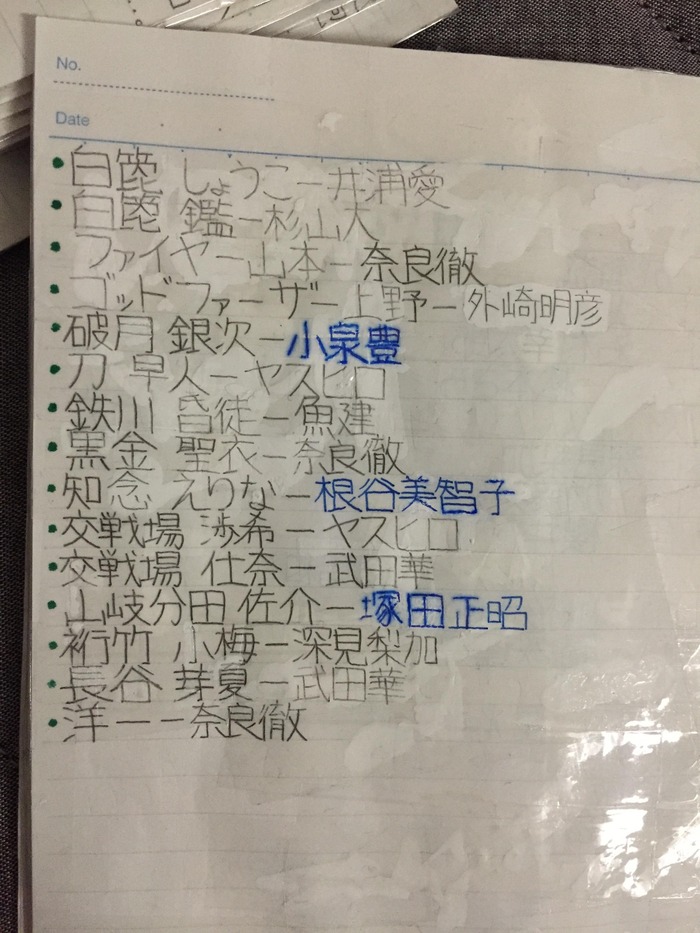 No.
Date
白箆 しょうこー井浦愛
白箆 鑑ー杉山大
ファイヤー山本ー奈良徹
ゴッドファーザー上野ー外崎明彦
破月 銀次ー小泉豊
刀 早人ーヤスヒロ
鉄川 昏徒ー魚建
黒金 聖衣ー奈良徹
知念 えりなー根谷美智子
交戦場 渉希ーヤスヒロ
交戦場 仕奈ー武田華
山岐分田 佐介ー塚田正昭
裄竹 小梅ー深見梨加
長谷 芽夏ー武田華
洋一ー奈良徹